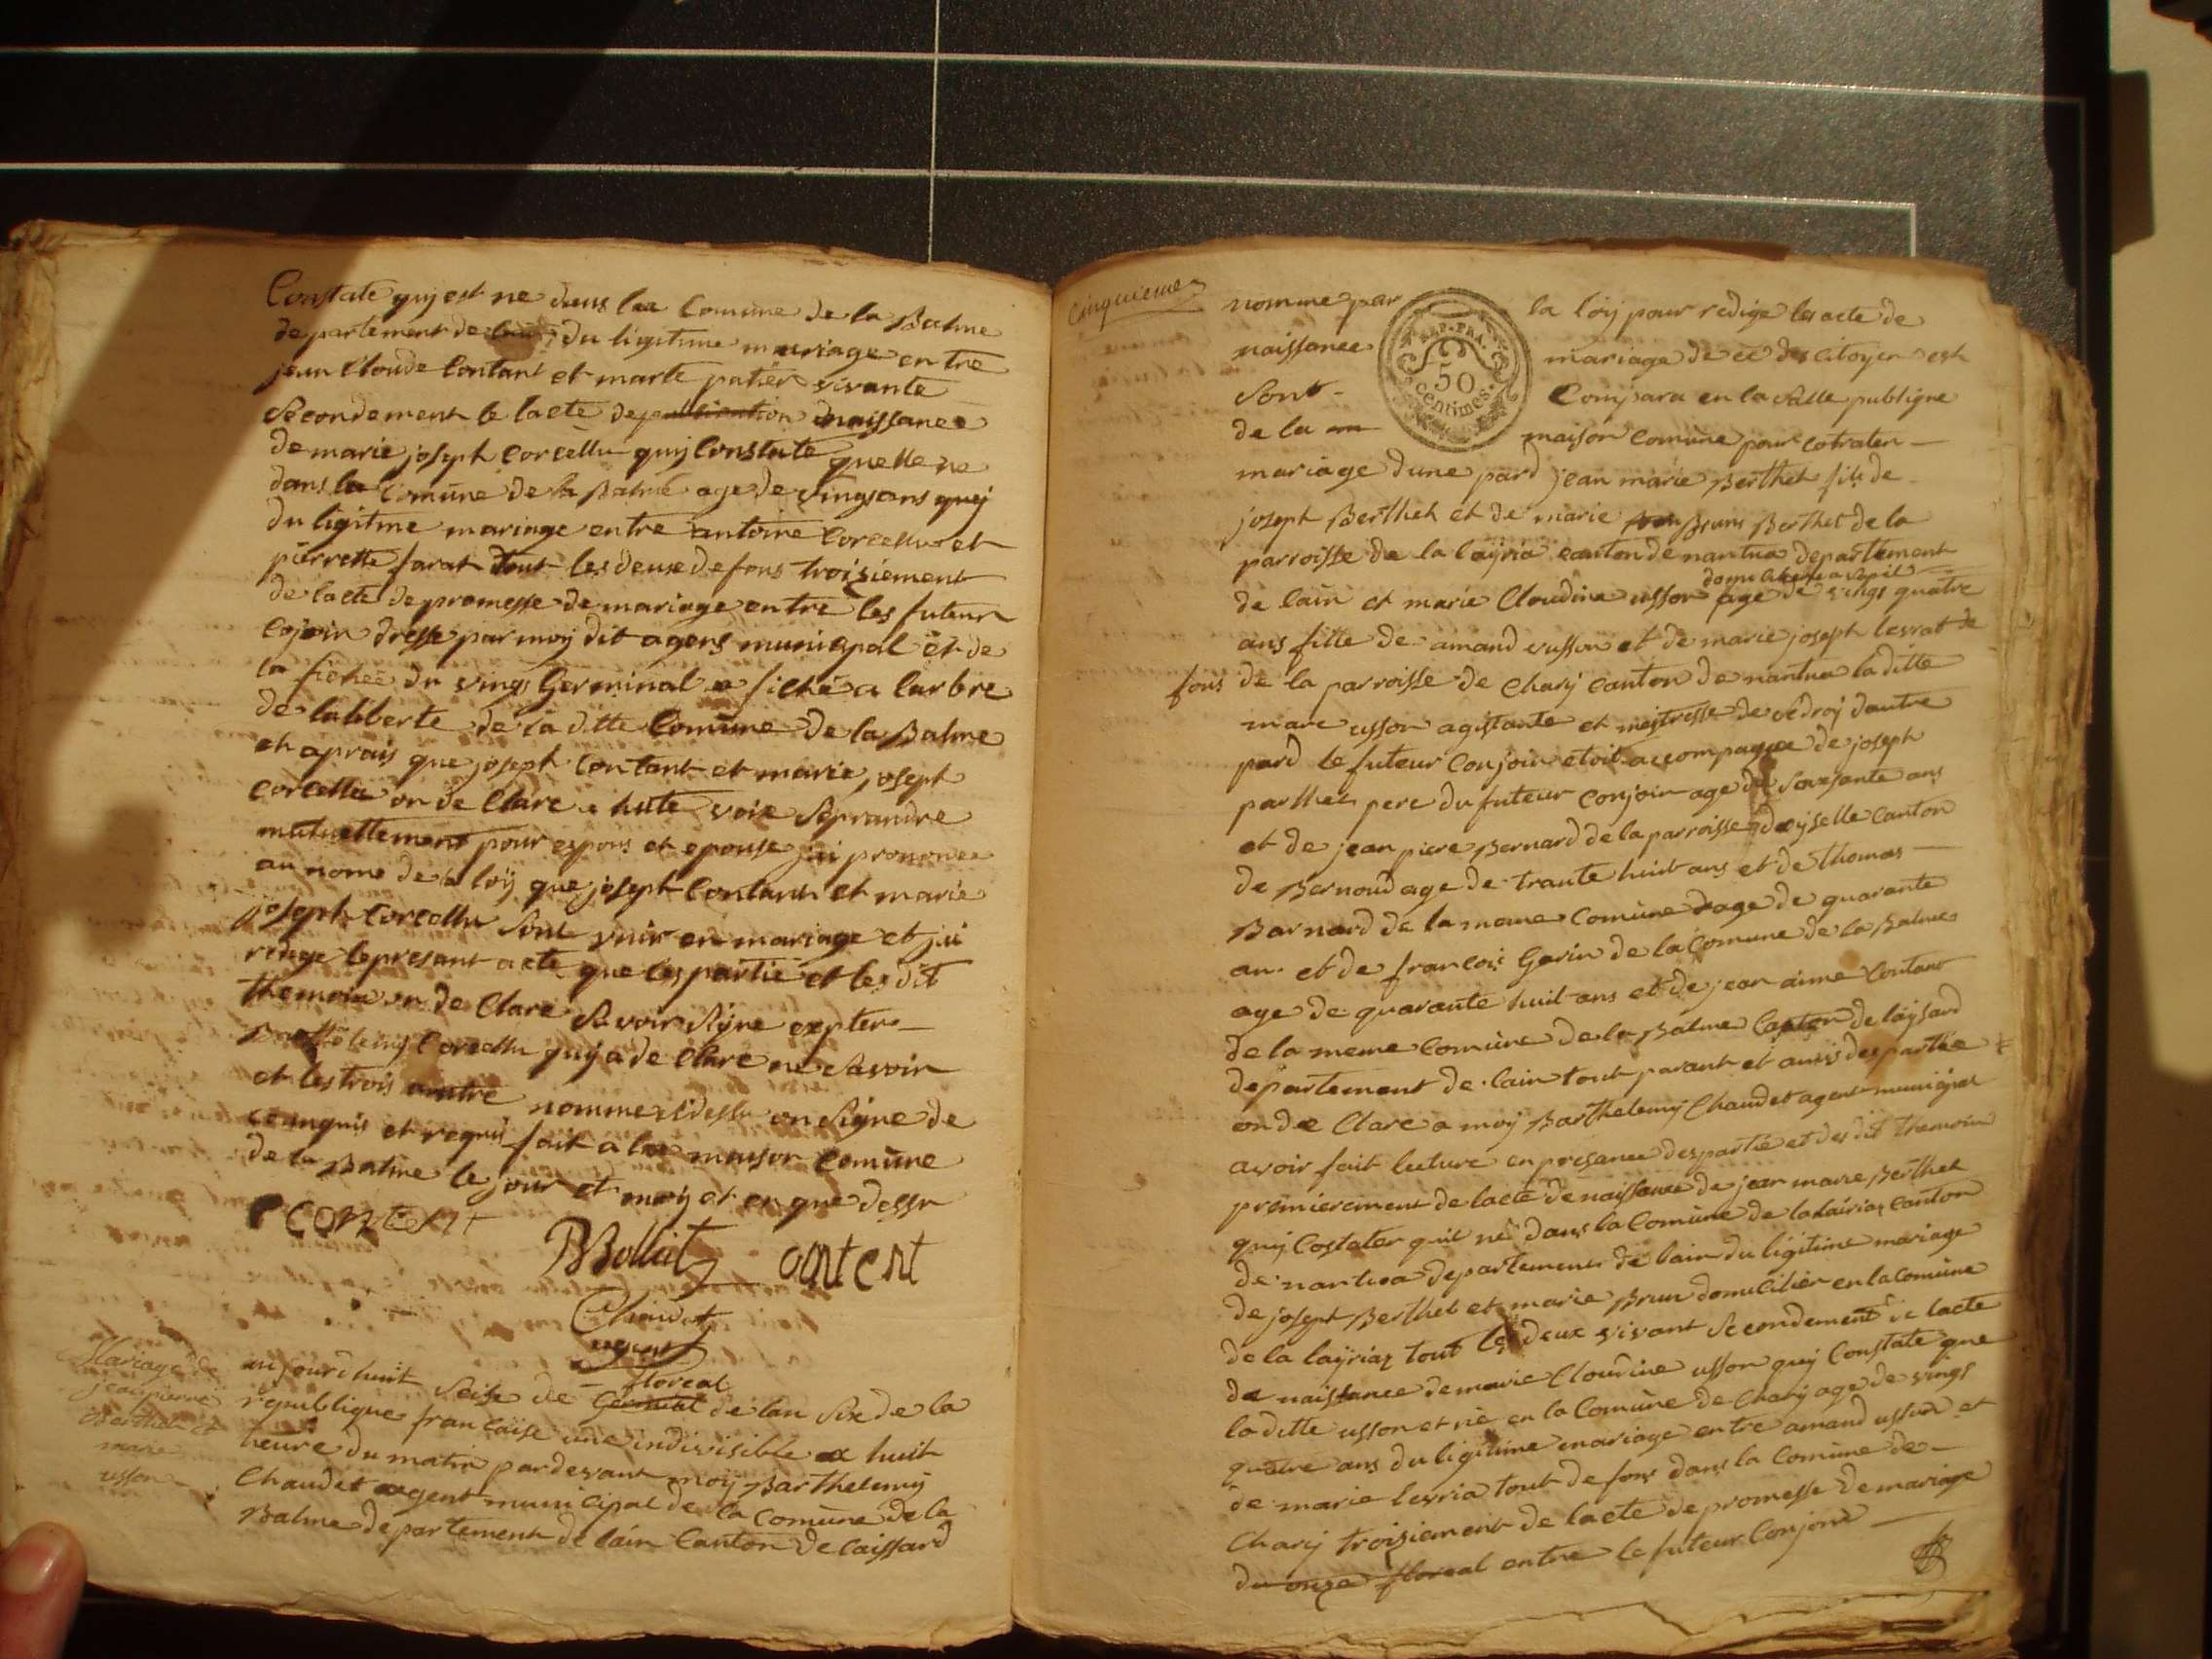 Constate quj est ne dans la Comune de la Balme
departement de du ligitime mariage entre
jean Cloude Contant et marte patier vivante
Secondement le lacte de publication naissance
de marie joseph Corcellu quj Constate quelle ne
dans la Comune de la Balme age de vingsans quej
du ligitme mariage entre antoine Corcellu et
pierrette farat tout les deux defons troisiement
de lacte de promesse de mariage entre les futeur
cojoin dresse par moy dit agens municpal et de
la fichee du vings Germinal a fiché a larbre
de laliberte de la ditte Comune de la Balme
et aprais que joseph Contant et marie joseph
Corcellu on de Clare a hute voix Seprandre
mutuellement pour espous et epouse jai prononce
au nome de la loÿ que joseph Contant et marie
joseph Corcellu Sont vnir en mariage et jai
redige le presant acte que les partie et les dit
themoin on de Clare Savoir Signe expter
Barthelemy Corcellu quij a de Clare ne Savoir
et les trois autre nommex sidessu on Signe de
ce anquis et requis fait a la maison Comune
de la Balme le jour et moij et en que dessu
contant
BBolliet contant
Chaudet
agent
Mariage de
jean pierre
Berthet et
marie
usson
aujourdhuit Seise de Germinal floreal de lan Six de la
republique francaise une indivisible a huit
heure du matin pardevant moÿ Barthelemy
Chaudet agent municipal de la Comune de la
Balme departement de lain Canton de laissard
Cinquieme
nomme par la loÿ pour redige les acte de
naissance mariage de ce des Citoyen est
Sont Compara en la Salle publique
de la maison Comune pour cotrater
mariage dune pard jean marie Berthet fils de
joseph Berthet et de marie Bruns Berthet de la
parroisse de la laÿria canton de nantua departement
de lain et marie Cloudine usson age de vings quatre
ans fille de amand vusson et de marie joseph levrat de
fons de la parroisse de Charij Canton de nantua la ditte
mare usson agistante et mestresse de sedroj dautre
pard le futeur Conjoin etoit accompagne de joseph
parthet pere du futeur Conjoin age de Soixsante ans
et de jean piere Bernard de la parroisse dijselle Canton
de Bernoud age de trante huit ans et de thomas
Barnard de la mame Comune dage de quarante
an et de francois Gerin de la Comune de la Balme
age de quarante huit ans et de jean aime Contant
de la meme Comune de la Balme Canton de laÿsard
departement de lain tout parant et amis des partie
on de Clare a moÿ Barthelemy Chaudet agent municpal
avoir fait lecture en presance des partie et des dit themoin
premierement de lacte de naissance de jean marie Berthet
quij Costater quil ne dans la Comune de la lairiaz Canton
de nantua departement de lain du ligitime mariage
de joseph Berthet et marie Brun domicilier en la Comune
de la laÿriaz tout les deux vivant Secondement de lacte
de naissance de marie Cloudine usson quij Constate que
la ditte usson et né en la Comune de Charij age de vings
quatre ans du ligitime mariage entre amand usson et
de marie levria tout de fons dans la Comune de
Charij troisiement de lacte de promesse de mariage
du onze floreal entre le futeur Conjoin
REP. FRA.
50
centimes.